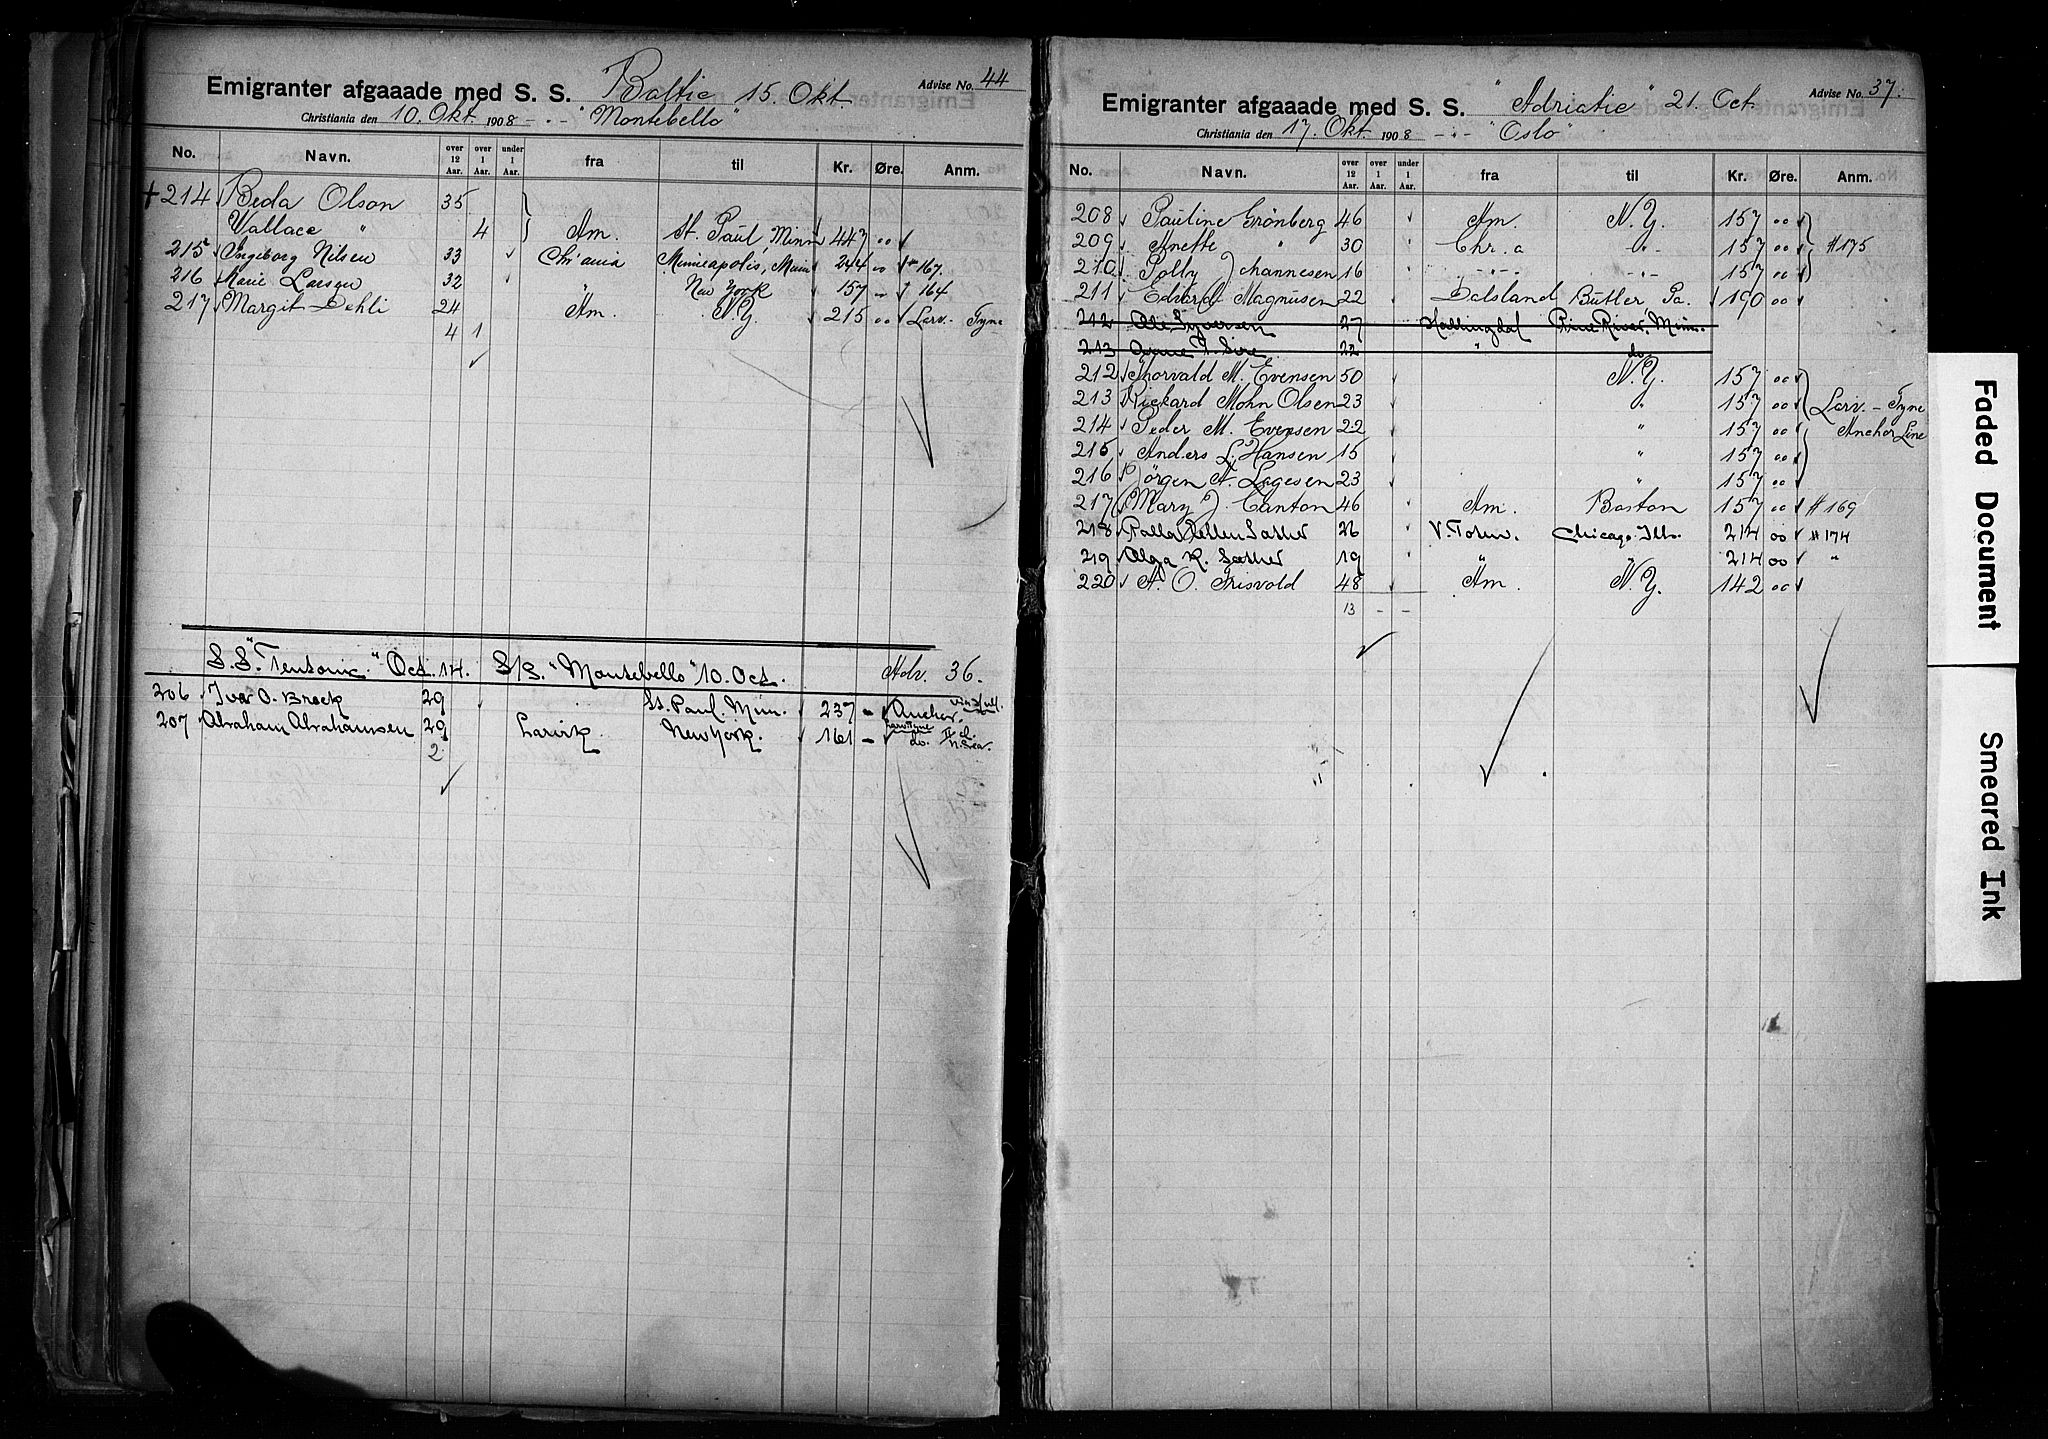 Emigranter afgaaade med S. S. Baltic 15. Okt. Advise No. 44
Christiania den 10. Okt. 1908 - „ - "Montebello"
No. Navn. over 12 Aar. over 1 Aar. under 1 Aar. fra til Kr. Øre. Anm.
+ 214 Beda Olson 35
Wallace " 4 Am. St. Paul Minn 447 00
215 Ingeborg Nilsen 33 Chr'ania Minneapolis, Minn 244 00 # 167.
216 Marie Larsen 32 " New York 157 " 164
217 Margit Dehli 24 Am. N.Y. 215 00 Larv. - Tyne
4 1
S.S. "Teutonic" Oct. 14. S/S. "Montebello" 10. Oct. Adv. 36.
206 Ivar O. Broek 29 St. Paul. Minn. 237 - Anchor. via Hull.
207 Abraham Abrahamsen 29 Larvik New York. 161 - do.
2
Emigranter afgaaade med S. S. "Adriatic" 21. Oct. Advise No. 37.
Christiania den 17. Okt. 1908 - „ - "Oslo"
No. Navn. over 12 Aar. over 1 Aar. under 1 Aar. fra til Kr. Øre. Anm.
208 Pauline Grönberg 46 Am. N.Y. 157 00
209 Anette " 30 Chr.a -"- 157 00 # 175
210 Solby Johannesen 16 -"- -"- 157 00
211 Edvard Magnusen 22 Dalsland Butler Pa. 190 00
212 Ole Syversen 27 Hallingdal Pine River, Minn.
213 22 " do
212 Thorvald M. Evensen 50 N.Y. 157 00
213 Rickard Mohn Olsen 23 " 157 00 Larv. - Tyne
214 Peder M. Evensen 22 " 157 00 Anchor Line
215 Anders L. Hansen 15 " 157 00
216 Jörgen A. Lagesen 23 " 157 00
217 Mary J. Canton 46 Am. Boston 157 00 # 169
218 Sather 26 V. Toten. Chicago Ills. 214 00 # 174
219 Olga K. Sather 19 " " 214 00 "
220 A. O. Trisvold 48 Am. N.Y. 142 00
13 - -
Faded Document
Smeared Ink